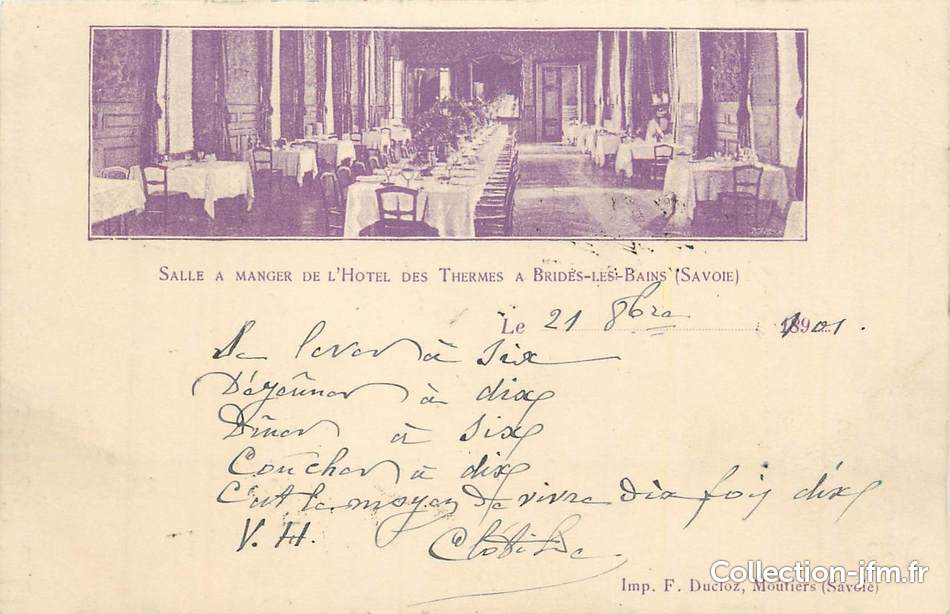 SALLE A MANGER DE L'HOTEL DES THERMES A BRIDES-LES-BAINS (SAVOIE)
Le 21 8bre 1901.
Se lever à six
Déjeûner à dix
Dîner à six
Coucher à dix
C'est le moyen de vivre dix fois dix
V. H. Clotilde
Imp. F. Ducloz, Moutiers (Savoie)
Collection-jfm.fr